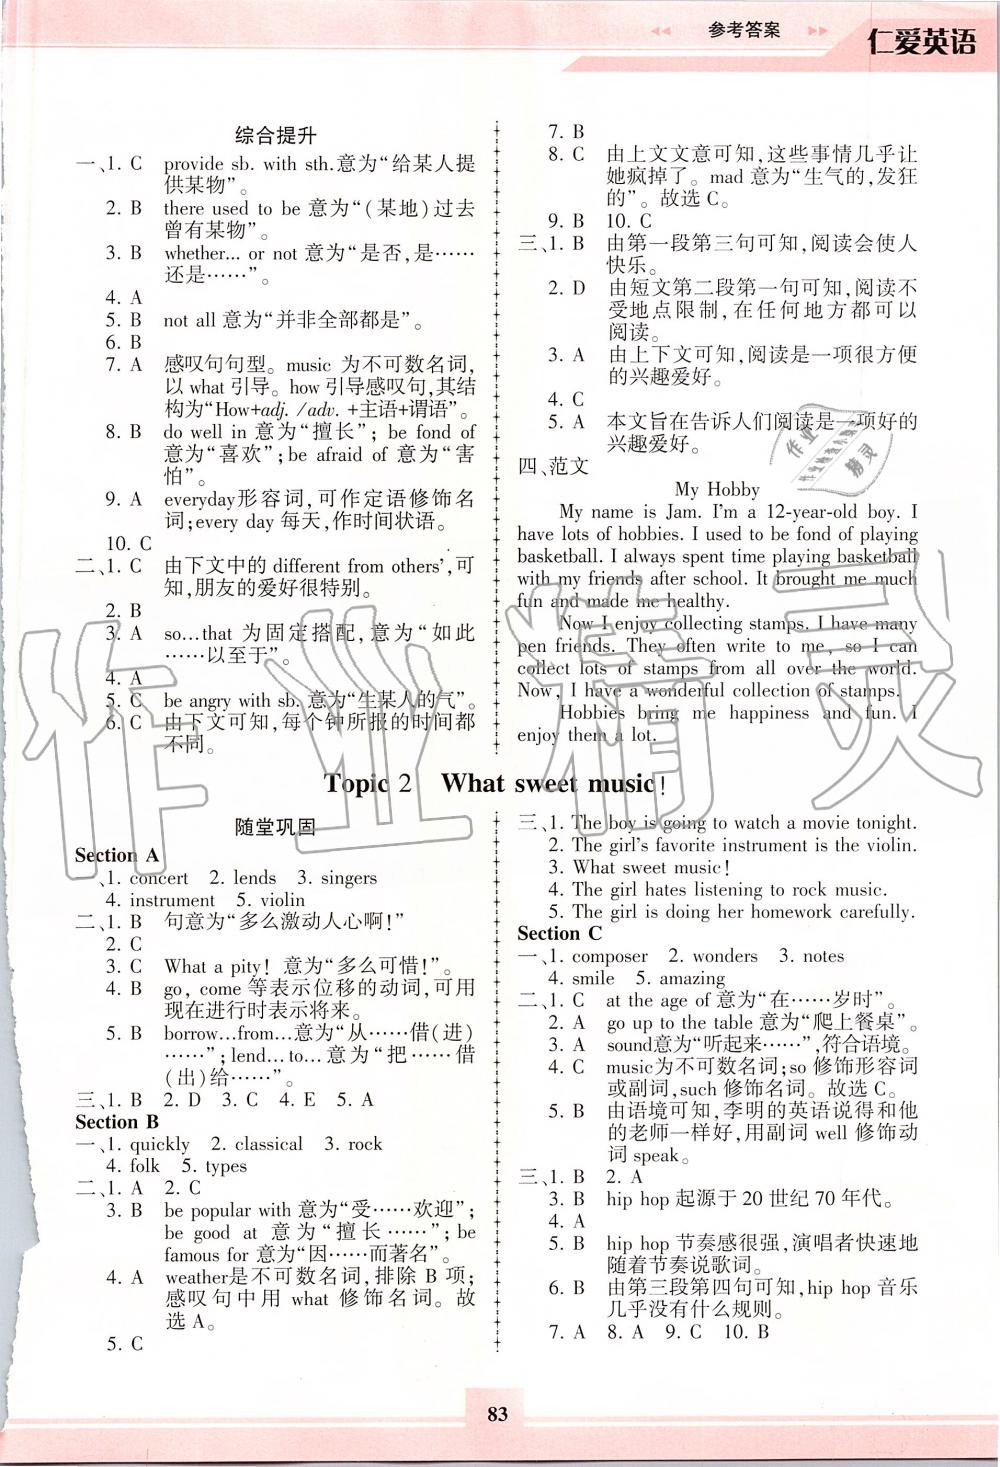 参考答案
仁爱英语
综合提升
一、1. C provide sb. with sth.意为“给某人提
供某物”。
2. B there used to be 意为“(某地)过去
曾有某物”。
3. B whether... or not 意为“是否,是……
还是……”。
4. A
5. B not all 意为“并非全部都是”。
6. B
7. A 感叹句句型。music 为不可数名词,
以 what 引导。how 引导感叹句,其结
构为“How+adj. /adv. +主语+谓语”。
8. B do well in 意为“擅长”; be fond of
意为“喜欢”;be afraid of 意为“害
怕”。
9. A everyday形容词,可作定语修饰名
词;every day 每天,作时间状语。
10. C
二、1. C 由下文中的 different from others',可
知,朋友的爱好很特别。
2. B
3. A so…that 为固定搭配,意为“如此
……以至于”。
4. A
5. C be angry with sb. 意为“生某人的气”。
6. C 由下文可知,每个钟所报的时间都
不同。
7. B
8. C 由上文文意可知,这些事情几乎让
她疯掉了。mad 意为“生气的,发狂
的”。故选 C。
9. B 10. C
三、1. B 由第一段第三句可知,阅读会使人
快乐。
2. D 由短文第二段第一句可知,阅读不
受地点限制,在任何地方都可以
阅读。
3. A 由上下文可知,阅读是一项很方便
的兴趣爱好。
4. C
5. A 本文旨在告诉人们阅读是一项好的
兴趣爱好。
四、范文
My Hobby
My name is Jam. I'm a 12-year-old boy. I
have lots of hobbies. I used to be fond of playing
basketball. I always spent time playing basketball
with my friends after school. It brought me much
fun and made me healthy.
Now I enjoy collecting stamps. I have many
pen friends. They often write to me, so I can
collect lots of stamps from all over the world.
Now, I have a wonderful collection of stamps.
Hobbies bring me happiness and fun. I
enjoy them a lot.
Topic 2 What sweet music!
随堂巩固
Section A
一、1. concert 2. lends 3. singers
4. instrument 5. violin
二、1. B 句意为“多么激动人心啊!”
2. C
3. C What a pity! 意为“多么可惜!”。
4. B go, come 等表示位移的动词,可用
现在进行时表示将来。
5. B borrow…from…意为“从……借(进)
……”;lend…to…意为“把……借
(出)给……”。
三、1. B 2. D 3. C 4. E 5. A
Section B
一、1. quickly 2. classical 3. rock
4. folk 5. types
二、1. A 2. C
3. B be popular with 意为“受……欢迎”;
be good at 意为“擅长……”; be
famous for 意为“因……而著名”。
4. A weather是不可数名词,排除 B 项;
感叹句中用 what 修饰名词。故
选 A。
5. C
三、1. The boy is going to watch a movie tonight.
2. The girl's favorite instrument is the violin.
3. What sweet music!
4. The girl hates listening to rock music.
5. The girl is doing her homework carefully.
Section C
一、1. composer 2. wonders 3. notes
4. smile 5. amazing
二、1. C at the age of 意为“在……岁时”。
2. A go up to the table 意为“爬上餐桌”。
3. A sound意为“听起来……”,符合语境。
4. C music为不可数名词;so 修饰形容词
或副词,such 修饰名词。故选 C。
5. B 由语境可知,李明的英语说得和他
的老师一样好,用副词 well 修饰动
词 speak。
三、1. B 2. A
3. B hip hop 起源于 20 世纪 70 年代。
4. A
5. B hip hop 节奏感很强,演唱者快速地
随着节奏说歌词。
6. B 由第三段第四句可知,hip hop 音乐
几乎没有什么规则。
7. A 8. A 9. C 10. B
83
作业精灵